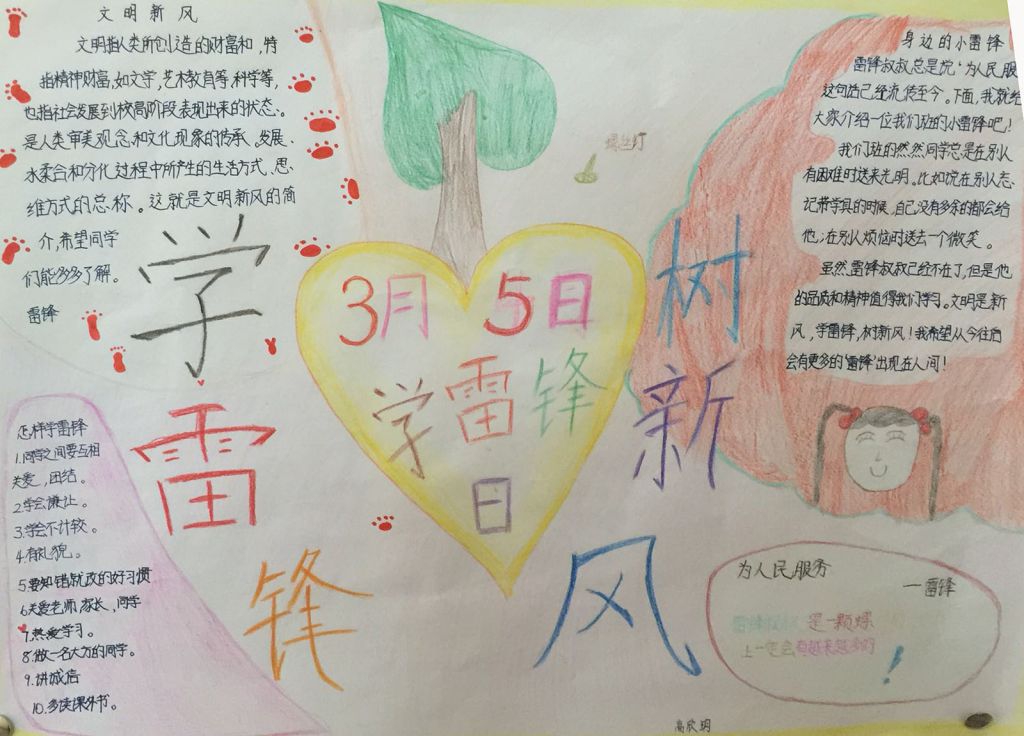 文明新风
文明指人类所创造的财富和,特
指精神财富,如文学,艺术教育等,科学等,
也指社会发展到较高阶段表现出来的状态。
是人类审美观念和文化现象的传承、发展、
水柔合和分化过程中所产生的生活方式、思
维方式的总称。这就是文明新风的简
介,希望同学
们能多多了解。
雷锋
学
雷
锋
3月5日
学雷锋
日
树
新
风
身边的小雷锋
雷锋叔叔总是说‘为人民服
这句话已经流传至今。下面,我就给
大家介绍一位我们班的小雷锋吧!
我们班的然然同学总是在别人
有困难时送来光明。比如说在别人忘
记带学具的时候,自己没有多余的都会给
他;在别人烦恼时送去一个微笑。
虽然,雷锋叔叔已经不在了,但是他
的品质和精神值得我们学习。文明是新
风,学雷锋,树新风!我希望从今往后
会有更多的‘雷锋’出现在人间!
怎样学雷锋
1.同学之间要互相
关爱,团结。
2.学会谦让。
3.学会不计较。
4.有礼貌。
5.要知错就改的好习惯
6.关爱老师,家长,同学
7.热爱学习。
8.做一名大方的同学。
9.讲诚信
10.多读课外书。
为人民服务
—雷锋
是一颗螺
上一定会有越来越多的
!
高欣玥